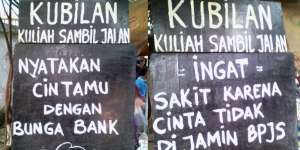 KUBILAN
KULIAH SAMBIL JALAN
NYATAKAN
CINTAMU
DENGAN
BUNGA BANK
KUBILAN
KULIAH SAMBIL JALAN
= INGAT =
SAKIT KARENA
CINTA TIDAK
DI JAMIN BPJS